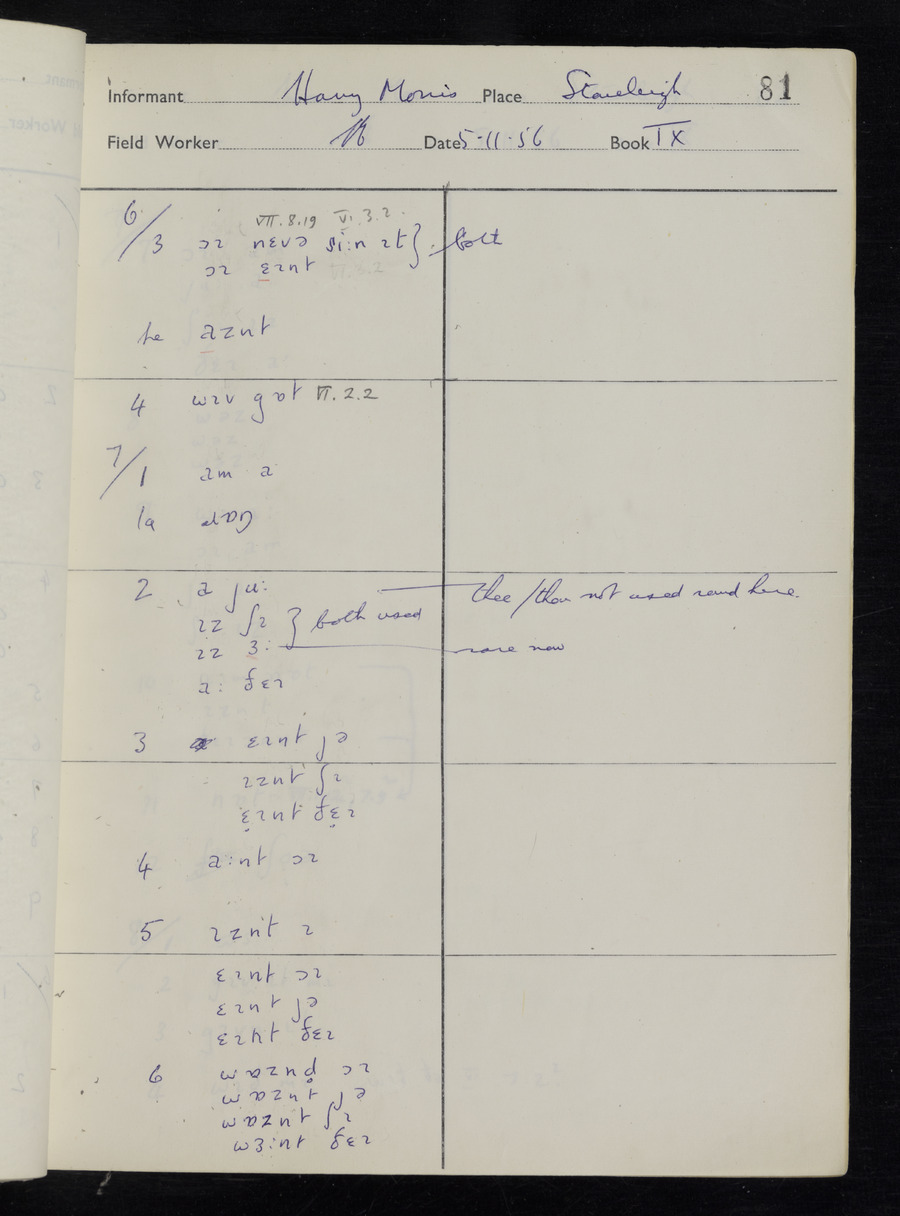 Informant Harry Morris Place Stoneleigh 81
Field Worker Date 5-11-56 Book IX
6/3 VII.8.19 VI.3.2.
ɔɪ nɛvə si:n ɪt } both
ɔɪ ɛɪnt
he æznt
4 wɪv gɒt VI.2.2
7/1 am a
1a
2 a ju: thee/thou not used round here.
ɪz ʃɪ } both used
ɪz ɜ: rare now
a: ðɛɪ
3 ɛɪnt jə
ɪznt ʃɪ
ɛɪnt ðɛɪ
4 a:nt ɔɪ
5 ɪznt ɪ
ɛɪnt ɔɪ
ɛɪnt jə
ɛɪnt ðɛɪ
6 wɒznt ɔɪ
wɒznt jə
wɒznt ʃɪ
wɜ:nt ðɛɪ